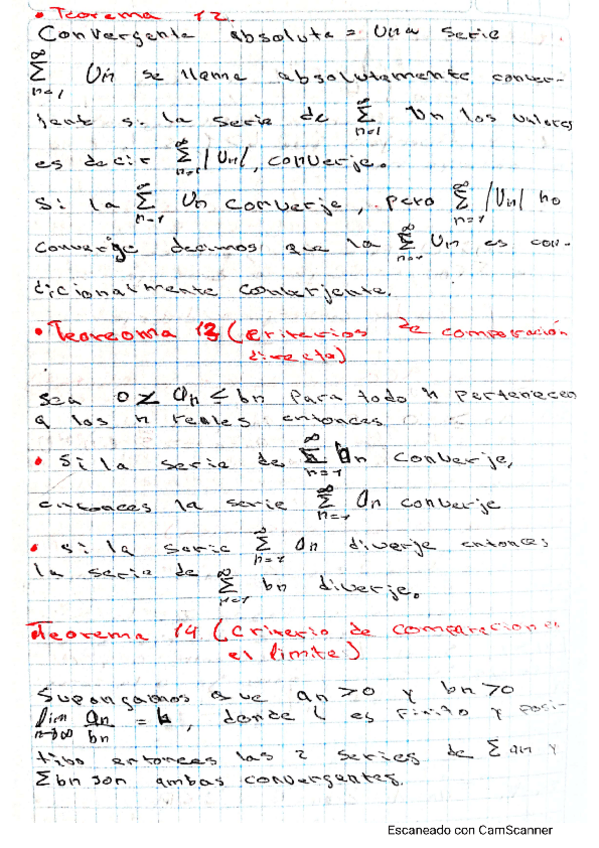 • Teorema 12.
Convergente absoluta = Una serie
∞ Σ n=1 Un se llama absolutamente conver-
jente si la serie de ∞ Σ n=1 Un los valores
es decir ∞ Σ n=1 |Un|, converje.
Si la ∞ Σ n=1 Un converje, pero ∞ Σ n=1 |Un| no
converje decimos que la ∞ Σ n=1 Un es con-
dicionalmente converjente.
• Teoreoma 13 (Criterios de comparación
directa)
Sea 0 ≤ an ≤ bn para todo n pertenecen
a los n reales entonces
• Si la serie de ∞ Σ n=1 bn converje,
entonces la serie ∞ Σ n=1 an converje
• si la serie ∞ Σ n=1 an diverje entonces
la serie de ∞ Σ n=1 bn diverje.
Teorema 14 (Criterio de comparaciones
el limite)
Supongamos que an > 0 y bn > 0
lim n→∞ an/bn = L, donde L es finito y posi-
tivo entonces las 2 series de Σ an y
Σ bn son ambas convergentes.
Escaneado con CamScanner